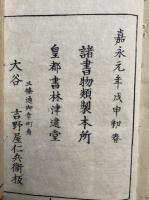 嘉永元年戊申初春
諸書物類製本所
皇都書林津逮堂
三條通御幸町角
大谷 吉野屋仁兵衛板